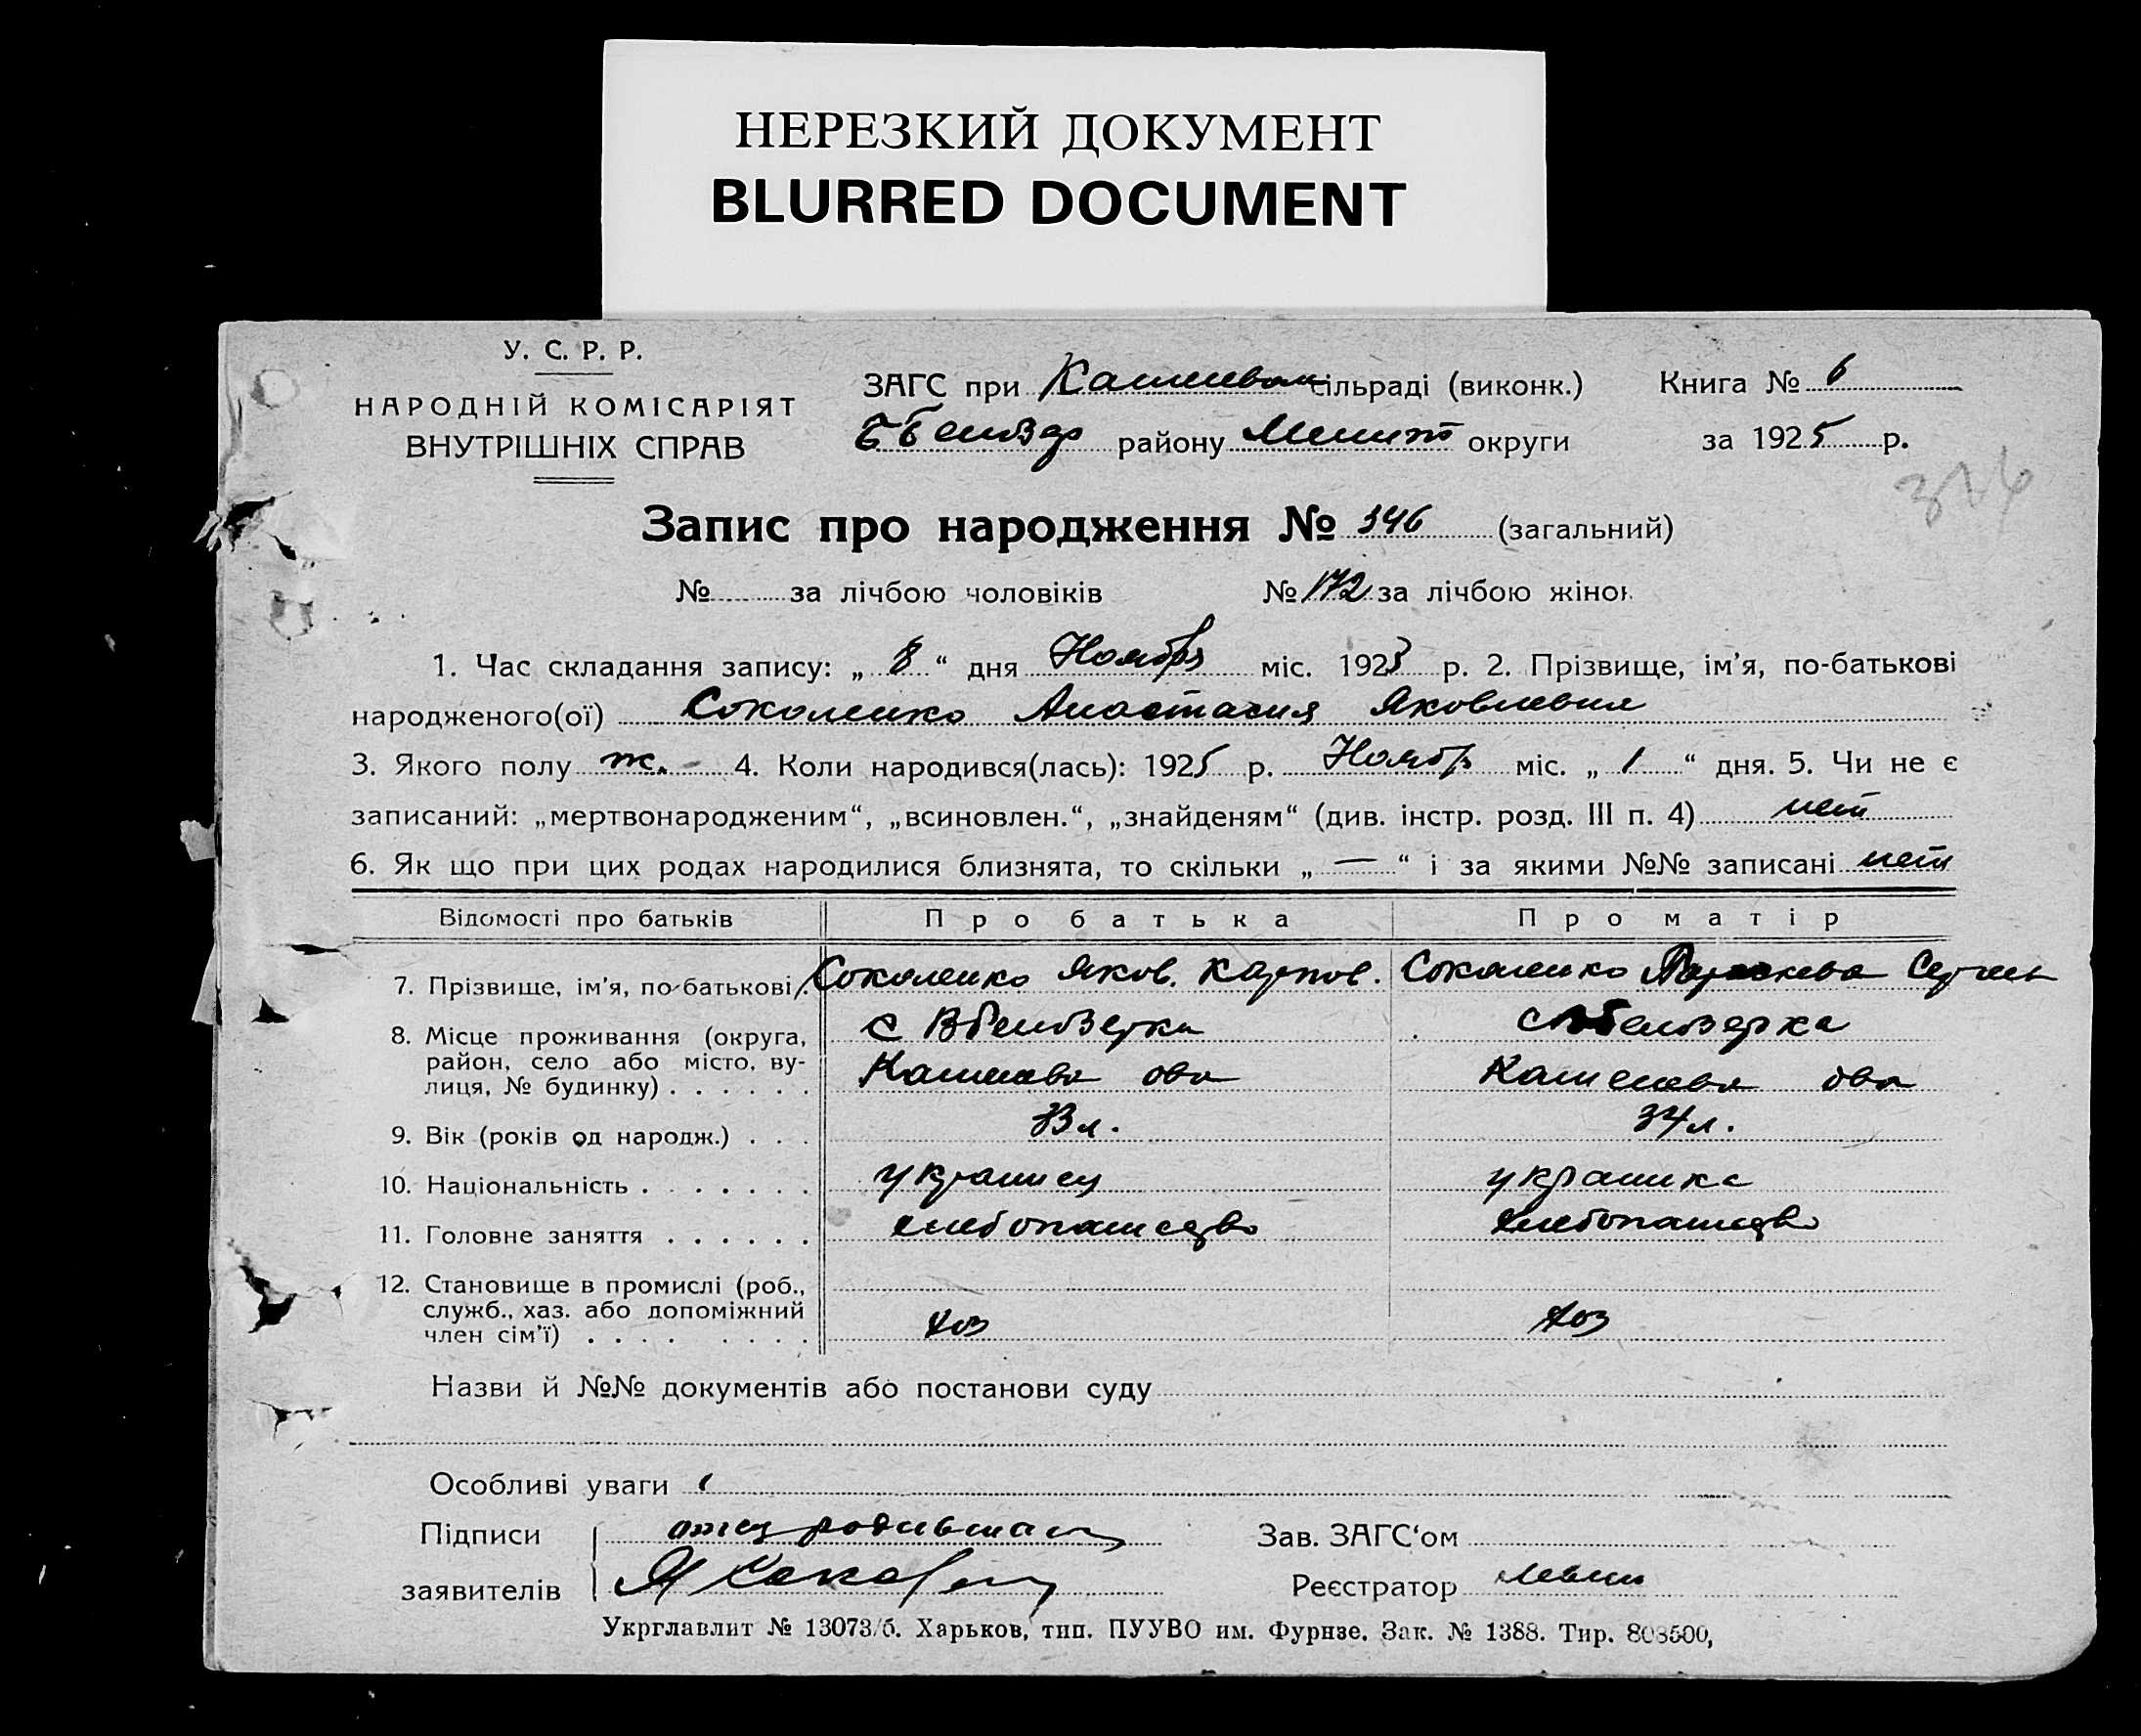 НЕРЕЗКИЙ ДОКУМЕНТ
BLURRED DOCUMENT
У. С. Р. Р.
НАРОДНІЙ КОМІСАРІЯТ
ВНУТРІШНІХ СПРАВ
ЗАГС при сільраді (виконк.) Книга № 6
району округи за 1925 р.
Запис про народження № 346 (загальний)
№ за лічбою чоловіків № 172 за лічбою жінок
1. Час складання запису: „ 8 “ дня Ноября міс. 192 р. 2. Прізвище, ім'я, по-батькові
народженого(ої) Соколенко Анастасия Яковлевна
3. Якого полу ж. 4. Коли народився(лась): 1925 р. Ноябр міс. „ 1 “ дня. 5. Чи не є
записаний: „мертвонародженим“, „всиновлен.“, „знайденям“ (див. інстр. розд. III п. 4) нет
6. Як що при цих родах народилися близнята, то скільки „ — “ і за якими №№ записані нет
Відомості про батьків Про батька Про матір
7. Прізвище, ім'я, по-батькові. Соколенко Яков. Карпов. Соколенко Сергеев
8. Місце проживання (округа,
район, село або місто, ву-
лиця, № будинку) . . . . . .
9. Вік (років од народж.) . . . 33 л. 34 л.
10. Національність . . . . . . . украинец украинка
11. Головне заняття . . . . . . хлебопашество хлебопашество
12. Становище в промислі (роб.,
служб., хаз. або допоміжний
член сім'ї) . . . . . . . . хоз хоз
Назви й №№ документів або постанови суду
Особливі уваги
Підписи отец Зав. ЗАГС'ом
заявителів Реєстратор
Укрглавлит № 13073/б. Харьков, тип. ПУУВО им. Фурнзе. Зак. № 1388. Тир. 803500,